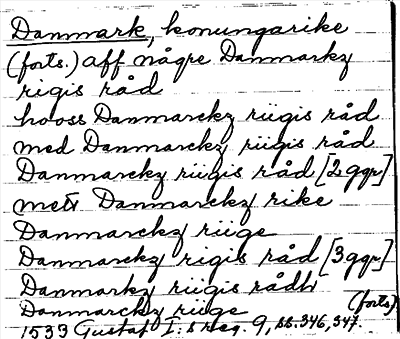 Danmark, konungarike
(forts.) aff någre Danmarkz
rigis råd
hooss Danmarckz riigis råd
med Danmarckz riigis råd
Danmarckz riigis råd [2 ggr]
mett Danmarckz rike
Danmarckz riige
Danmarckz rigis råd [3 ggr]
Danmarkz riigis rådh
Danmarckz riige (forts)
1533 Gustaf I:s reg. 9, ss. 346, 347.